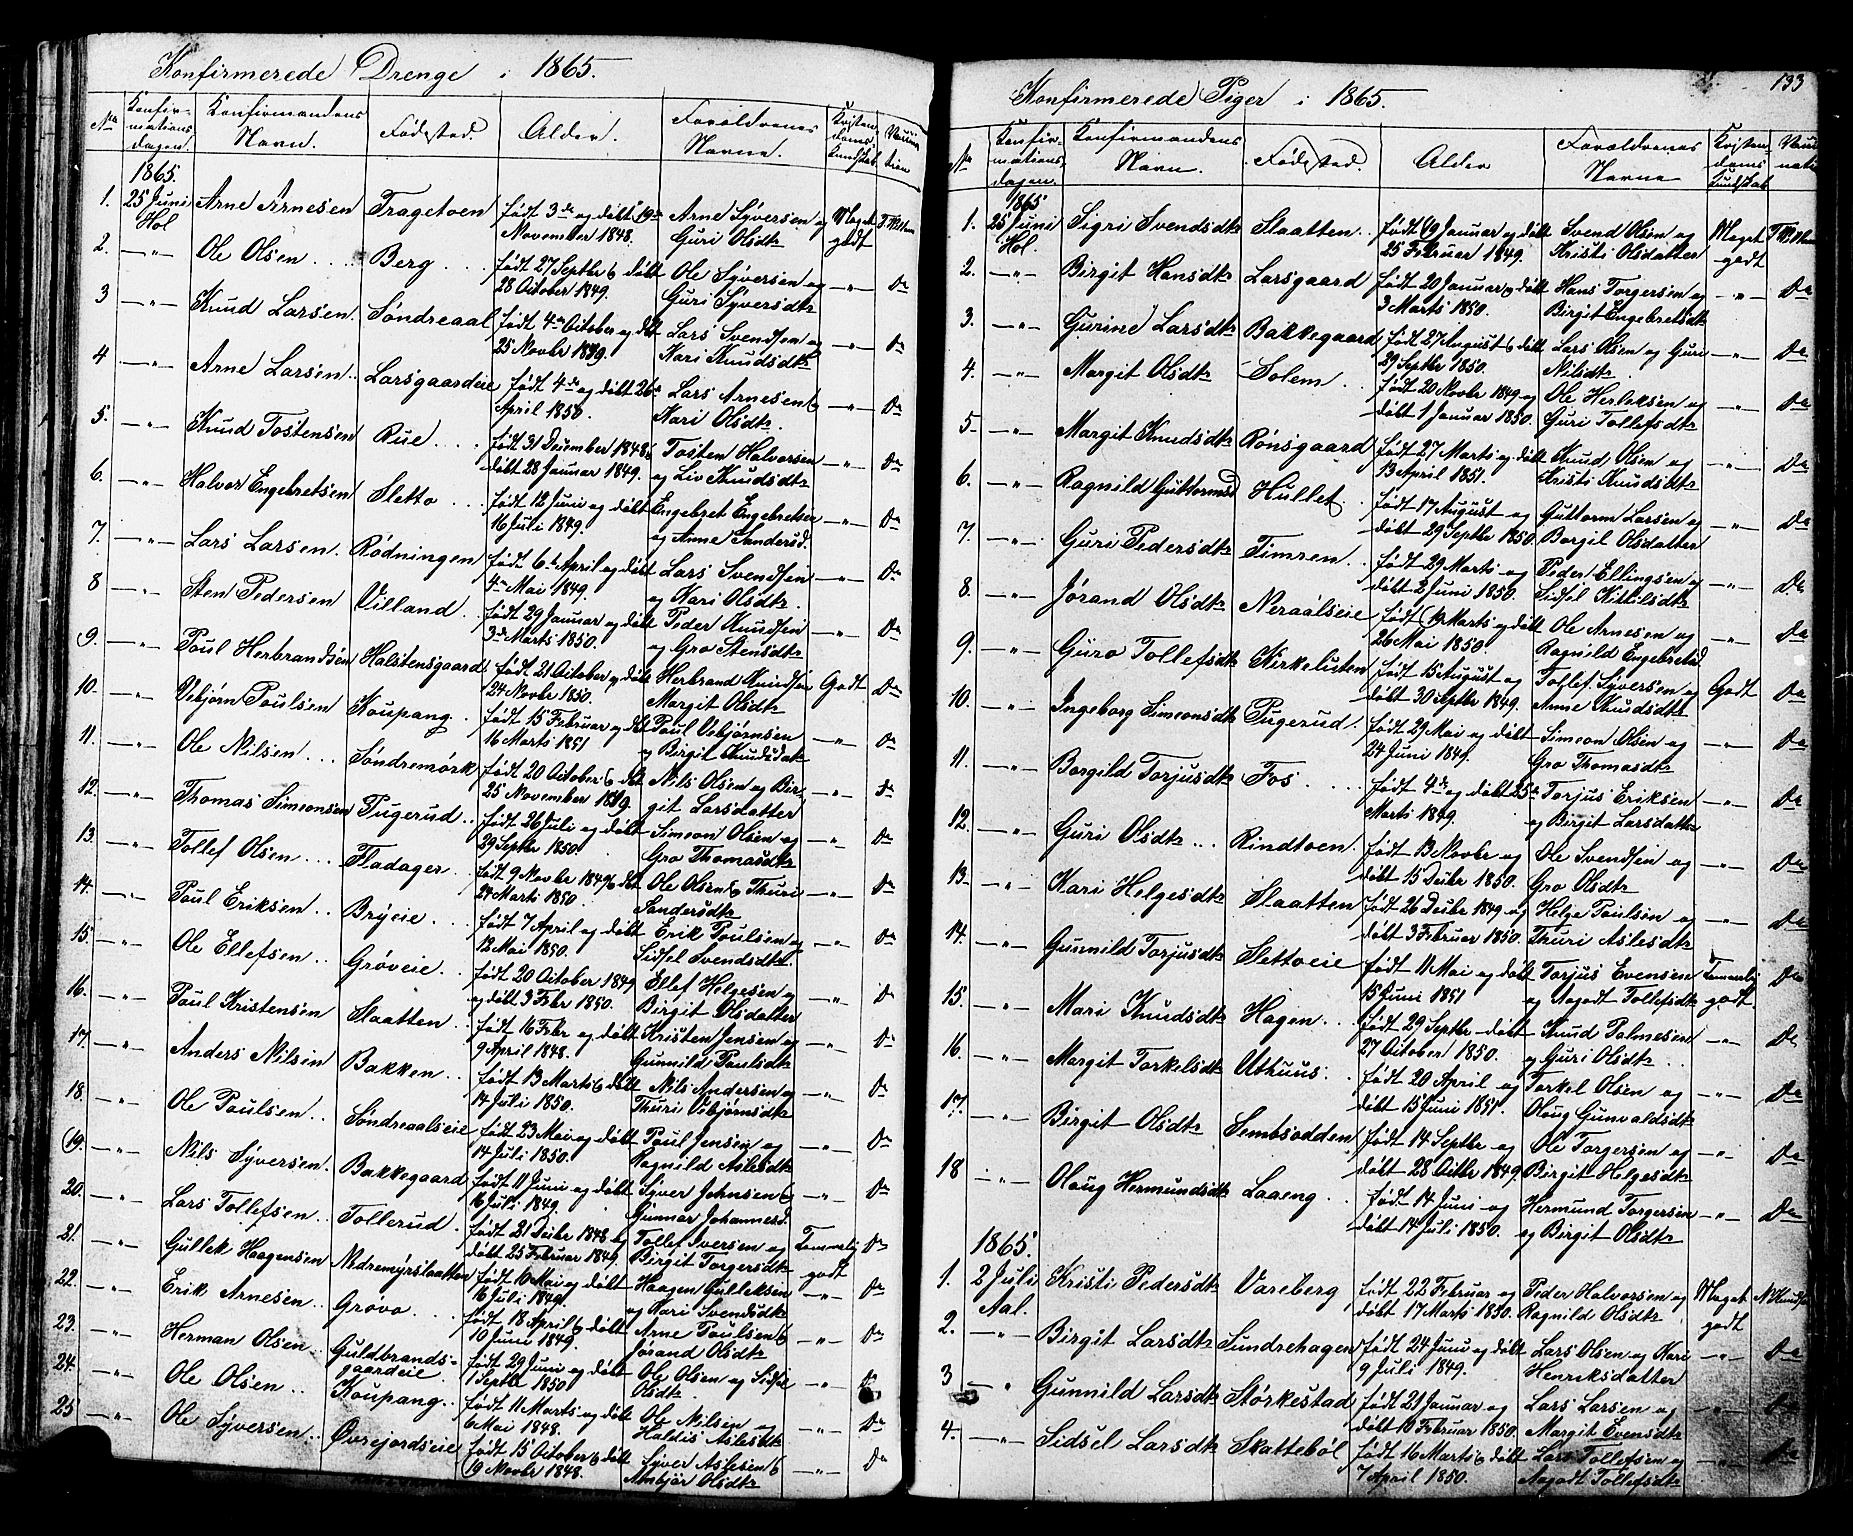 Konfirmerede Drenge i 1865.
No Konfirmationsdagen. Konfirmandens Navn. Fødested. Alder. Forældrenes Navne. Kristendomskundskab
1865.
1. 25 Juni Hol Arne Arnesen Tragetoen født 3de og døbt 19de Arne Syversen og Meget
November 1848. Guri Olsdtr godt
2. —„— Ole Olsen Berg født 27 Septbr & døbt Ole Syversen og —„— Do
28 October 1849. Guri Syversdtr
3 —„— Knud Larsen Søndreaal født 4de October og døbt Lars Svendsen og —„— Do
25 Novbr 1849. Kari Knudsdtr
4 —„— Arne Larsen Larsgaardeie født 4de og døbt 26de Lars Arnesen & —„— Do
April 1850. Kari Olsdtr.
5. —„— Knud Tostensen Rue født 31 December 1848 Tosten Halvorsen —„— Do
døbt 28 Januar 1849. og Liv Knudsdtr
6. —„— Halvor Engebretsen Sletto født 12 Juni og døbt Engebret Engebretsen —„— Do
16 Juli 1849. og Anne Sandersd.
7. —„— Lars Larsen Rødningen født 6te April og døbt Lars Svendsen —„— Do
4de Mai 1849. og Kari Olsdtr.
8 —„— Sten Pedersen Villand født 29 Januar og døbt Peder Knudsen —„— Do
3de Marts 1850. og Gro Stensdtr
9. —„— Poul Herbrandsen Halstensgaard født 21 October og døbt Herbrand Knudsen Godt Do
24 Novbr 1850. Margit Olsdtr
10. —„— Vebjørn Poulsen Koupang. født 15 Februar og døbt Poul Vebjørnsen —„— Do
16 Marts 1851 og Birgit Knudsdatr
11. —„— Ole Nilsen Søndremørk født 20 October & døbt Nils Olsen og Bir- —„— Do
25 November 1849. git Larsdatter
12. —„— Thomas Simeonsen Pugerud født 26 Juli og døbt Simeon Olsen og —„— Do
29 Septbr 1850. Gro Thomasdtr
13. —„— Tollef Olsen Fladager født 9 Novbr 1849 & døbt Ole Olsen & Thuri —„— Do
24 Marts 1850 Sandersdtr
14. —„— Poul Eriksen Bryeie født 7 April og døbt Erik Poulsen og —„— Do
12 Mai 1850. Sidsel Svendsdtr.
15. —„— Ole Ellefsen Grøveie født 20 October 1849 Ellef Helgesen og —„— Do
og døbt 3 Febr 1850. Birgit Olsdatter
16. —„— Poul Kristensen Slaatten født 16 Febr og døbt Kristen Jensen og —„— Do
9 April 1848. Gunnild Poulsdtr
17. —„— Anders Nilsen Bakken født 13 Marts & døbt Nils Andersen og —„— Do
14 Juli 1850. Thuri Vebjørnsdtr
18. —„— Ole Poulsen Søndreaalseie født 23 Mai og døbt Poul Jensen og —„— Do
14 Juli 1850. Ragnild Aslesdtr
19. —„— Nils Syversen Bakkegaard født 11 Juni og døbt Syver Johnsen & —„— Do
16 Juli 1849. Gunnar Johannesd.
20. —„— Lars Tollefsen Tollerud født 21 Decbr 1848 og Tollef Iversen og Temmelig Do
døbt 25 Februar 1849. Birgit Torgersdtr godt
21. —„— Gullek Haagensen Nedremyrslaatten født 10 Mai og døbt Haagen Gulleksen —„— Do
16 Juli 1849. og Kari Svendsdtr
22. —„— Erik Arnesen Grøvo født 18 April & døbt Arne Poulsen & —„— Do
10 Juni 1849. Jørand Olsdtr
23. —„— Herman Olsen Guldbrandsgaardeie født 29 Juni og døbt Ole Olsen og Sidsel —„—
1 Septbr 1850 Olsdtr
24. —„— Ole Olsen Koupang født 11 Marts og døbt Ole Nilsen og —„— Do
6 Mai 1848. Haldis Aslesdtr
25 —„— Ole Syversen Øvrejordseie født 15 October & døbt Syver Aslesen & —„— Do
19 Novbr 1848. Ambjør Olsdtr
133
Konfirmerede Piger i 1865.
No Konfirmationsdagen. Konfirmandens Navn. Fødested. Alder Forældrenes Navne Kristendomskundskab
1865
1. 25 Juni Hol. Sigri Svendsdtr Slaatten født 19 Januar og døbt Svend Olsen og Meget
25 Februar 1849. Kristi Olsdatter godt
2. —„— Birgit Hansdtr Larsgaard født 20 Januar og døbt Hans Torgersen og —„— Do
3 Marts 1850. Birgit Engebretsdtr
3. —„— Gurine Larsdtr Bakkegaard født 27 August & døbt Lars Olsen og Guri —„— Do
29 Septbr 1850. Nilsdtr
4. —„— Margit Olsdtr Solem født 20 Novbr 1849 og Ole Herleksen og —„— Do
døbt 1 Januar 1850. Guri Tollefsdtr
5. —„— Margit Knudsdtr Rønsgaard født 27 Marts og døbt Knud Olsen og —„— Do
13 April 1851. Kristi Knudsdtr
6. —„— Ragnild Guttormsd Hullet født 17 August og Guttorm Larsen og —„— Do
døbt 29 Septbr 1850 Borgil Olsdatter
7. —„— Guri Pedersdtr Timren født 29 Marts og Peder Ellingsen og —„— Do
døbt 2 Juni 1850. Sidsel Kittilsdtr
8. —„— Jørand Olsdtr Neraalseie født 19 Marts og døbt Ole Arnesen og —„— Do
26 Mai 1850 Ragnild Engebretsd.
9. —„— Guro Tollefsdtr Kirkelieten født 15 August og Tollef Syversen og Godt Do
døbt 30 Septbr 1849. Anne Knudsdtr
10. —„— Ingeborg Simeonsdtr Pugerud. født 29 Mai og døbt Simeon Olsen og —„— Do
24 Juni 1849. Gro Thomasdtr
11. —„— Borgild Torjusdtr Fos født 4de og døbt 25de Torjus Eriksen —„— Do
Marts 1849. og Birgit Larsdatter
12. —„— Guri Olsdtr Rindtoen født 13 Novbr og Ole Svendsen og —„— Do
døbt 15 Decbr 1850. Gro Olsdtr
13. —„— Kari Helgesdtr Slaatten født 26 Decbr 1849 og Helge Poulsen og —„— Do
døbt 3 Februar 1850. Thuri Aslesdtr
14. —„— Gunnild Torjusdtr Slettoeie født 11 Mai og døbt Torjus Evensen Temmelig Do
15 Juni 1851 og Aagodt Tollefsdtr godt
15. —„— Mari Knudsdtr Hagen født 29 Septbr døbt Knud Palmesen —„— Do
27 October 1850. og Guri Olsdtr
16. —„— Margit Torkelsdtr Uthuus født 20 April og Torkel Olsen og —„— Do
døbt 15 Juni 1851. Olaug Gunvaldsdtr
17. —„— Birgit Olsdtr Sembsodden født 14 Septbr og Ole Torgersen og —„— Do
døbt 28 Octbr 1849 Birgit Helgesdtr
18 —„— Olaug Hermundsdtr Laaeng født 14 Juni og Hermund Torgersen —„— Do
døbt 14 Juli 1850. og Birgit Olsdtr
1865.
1. 2 Juli Aal. Kristi Pedersdtr Vareberg født 22 Februar og Peder Halvorsen og Meget
døbt 17 Marts 1850. Ragnild Olsdtr godt
2. —„— Birgit Larsdtr Sundrehagen født 24 Juni og døbt Lars Olsen og Kari —„— Do
9 Juli 1849. Henriksdatter
3 —„— Gunnild Larsdtr Størkestad født 21 Januar og Lars Larsen og —„— Do
døbt 10 Februar 1850. Margit Evensdtr
4. —„— Sidsel Larsdtr Skattebøl født 16 Marts & døbt Lars Tollefsen og —„— Do
7 April 1850. Aagodt Tollefsdtr